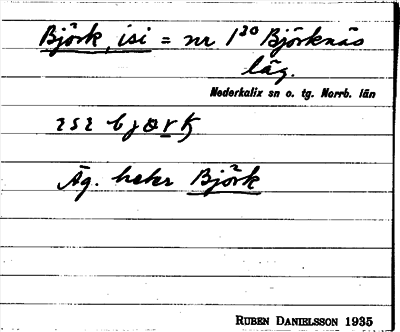 Björk, isi = nr 1²⁰ Björknäs
läg.
Nederkalix sn o. tg. Norrb. län
Äg. heter Björk
RUBEN DANIELSSON 1935